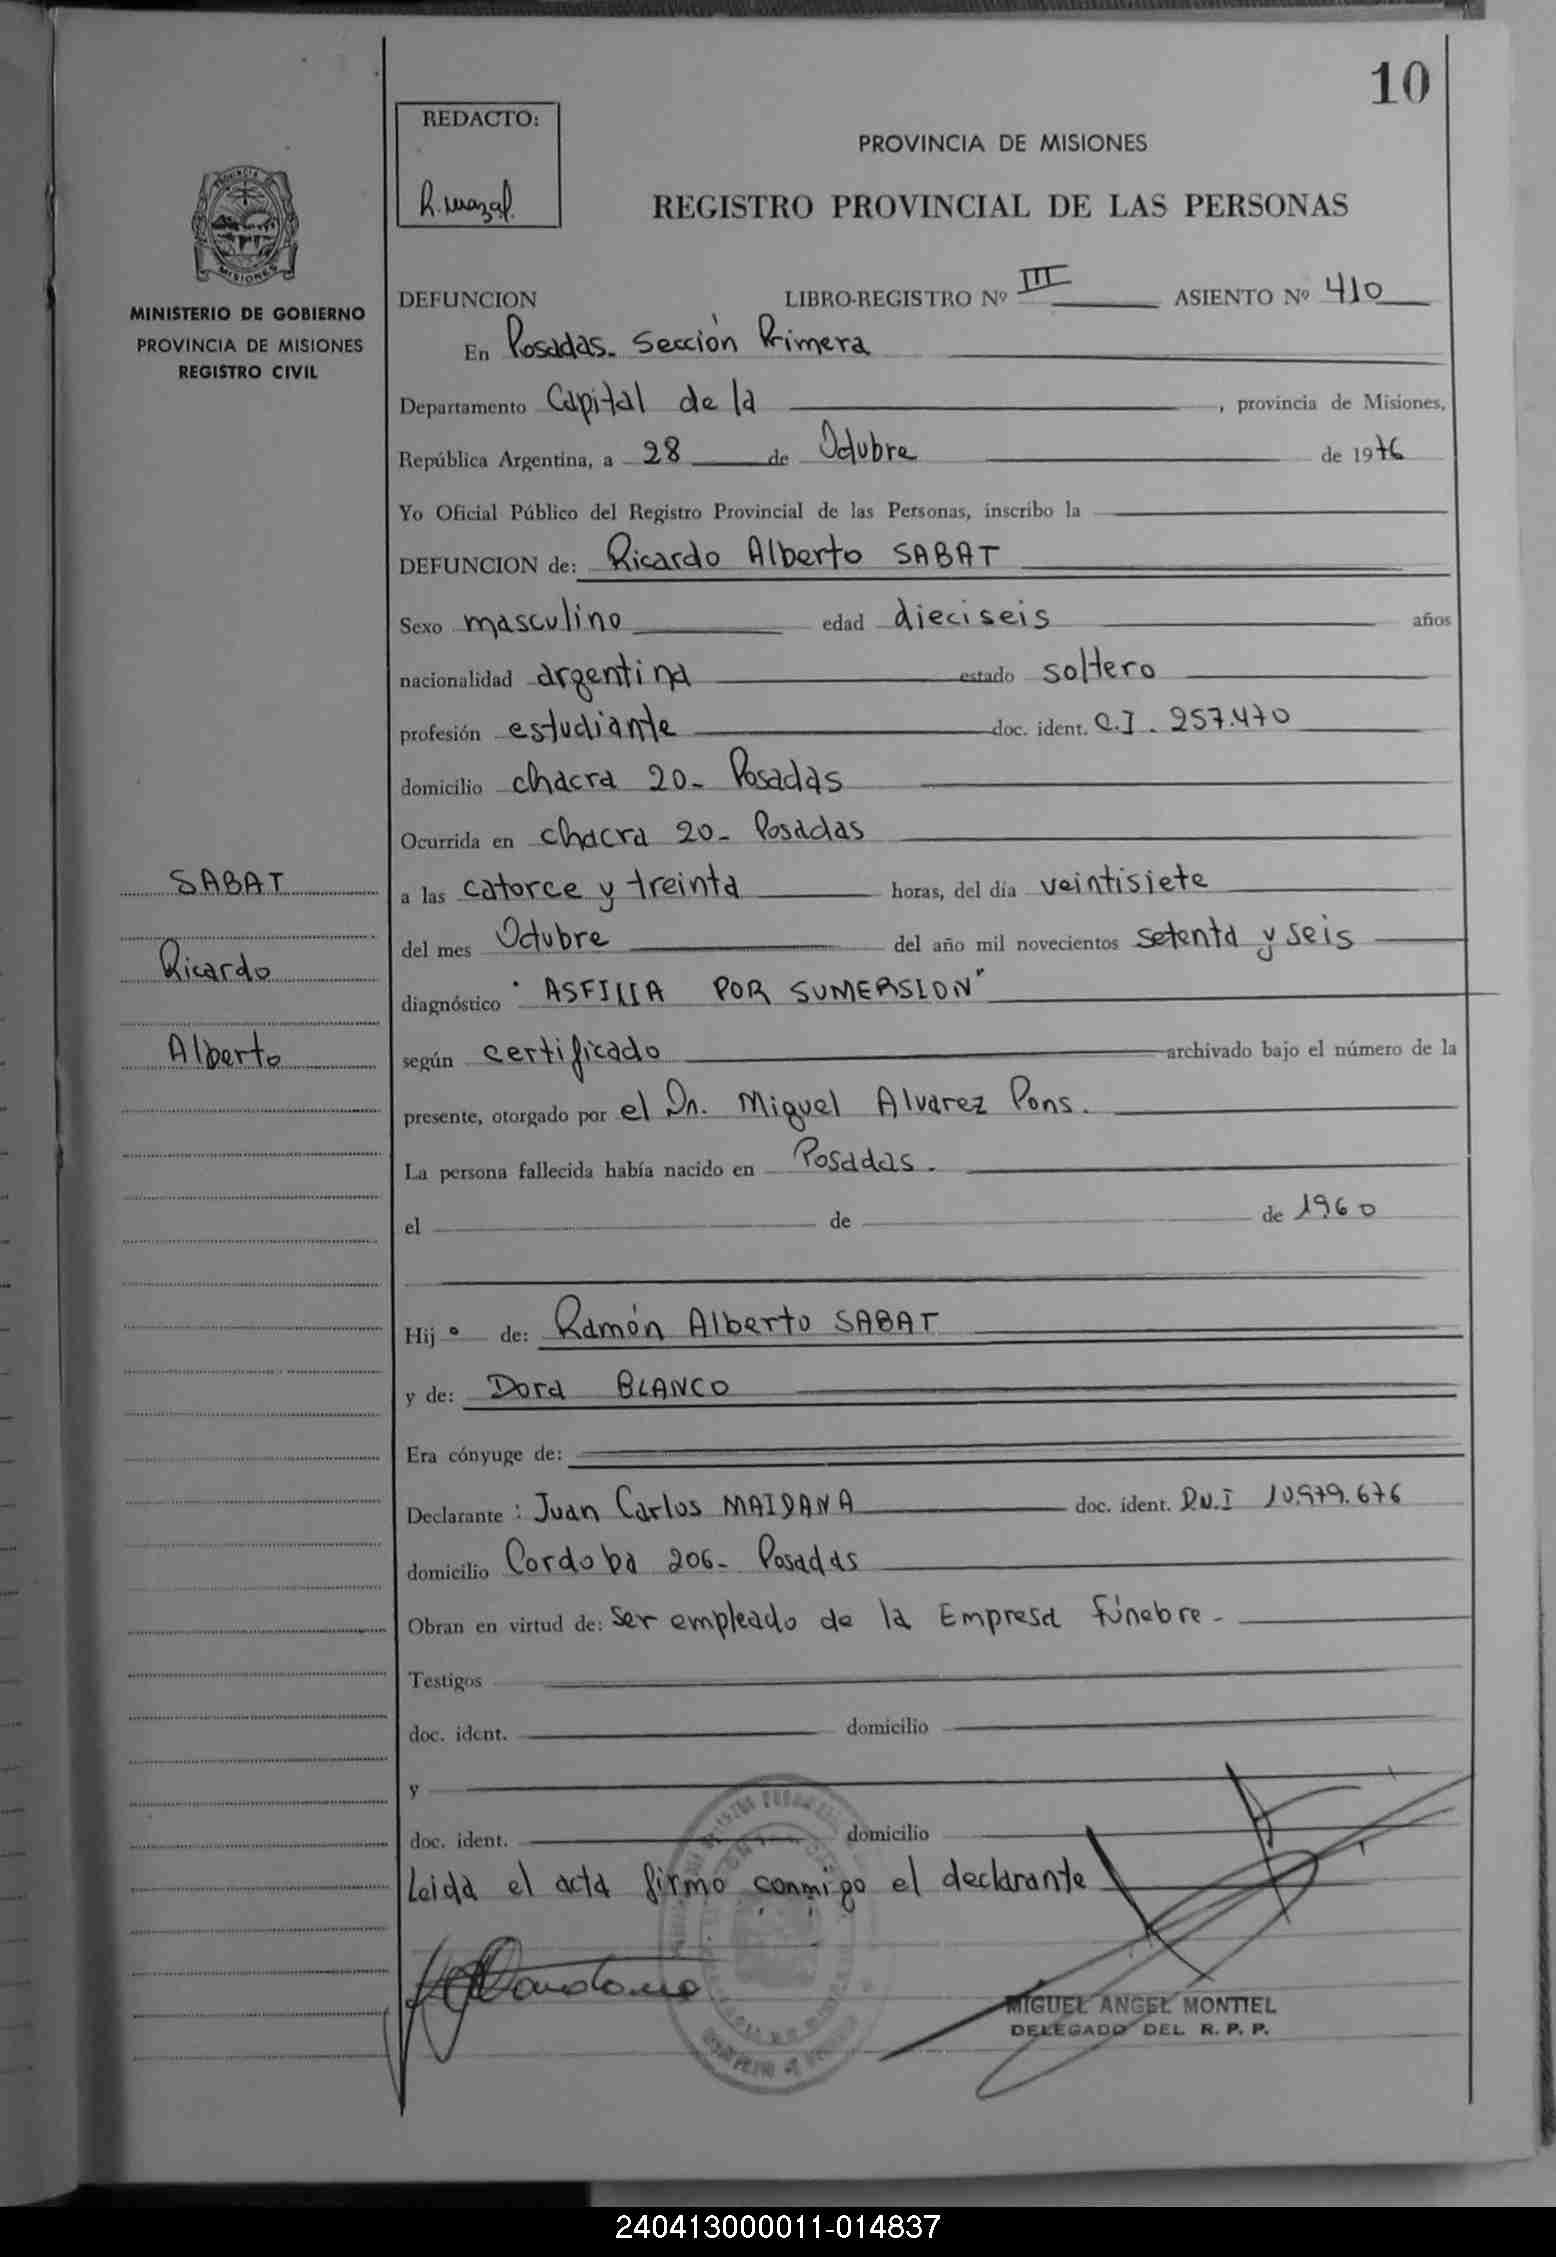 10
REDACTO:
R. Mazal.
PROVINCIA DE MISIONES
REGISTRO PROVINCIAL DE LAS PERSONAS
PROVINCIA DE
MISIONES
MINISTERIO DE GOBIERNO
PROVINCIA DE MISIONES
REGISTRO CIVIL
DEFUNCION LIBRO-REGISTRO Nº III ASIENTO Nº 410
En Posadas. Sección Primera
Departamento Capital de la , provincia de Misiones,
República Argentina, a 28 de Octubre de 1976
Yo Oficial Público del Registro Provincial de las Personas, inscribo la
DEFUNCION de: Ricardo Alberto SABAT
Sexo masculino edad dieciseis años
nacionalidad argentina estado soltero
profesión estudiante doc. ident. C.I. 257.470
domicilio chacra 20- Posadas
Ocurrida en chacra 20- Posadas
SABAT
Ricardo
Alberto
a las catorce y treinta horas, del día veintisiete
del mes Octubre del año mil novecientos setenta y seis
diagnóstico "ASFIXIA POR SUMERSION"
según certificado archivado bajo el número de la
presente, otorgado por el Dr. Miguel Alvarez Pons.
La persona fallecida había nacido en Posadas.
el de de 1960
Hijo de: Ramón Alberto SABAT
y de: Dora BLANCO
Era cónyuge de:
Declarante: Juan Carlos MAIDANA doc. ident. D.N.I 10.979.676
domicilio Cordoba 206- Posadas
Obran en virtud de: ser empleado de la Empresa fúnebre-
Testigos
doc. ident. domicilio
y
doc. ident. domicilio
Leida el acta firmo conmigo el declarante
MIGUEL ANGEL MONTIEL
DELEGADO DEL R. P. P.
240413000011-014837